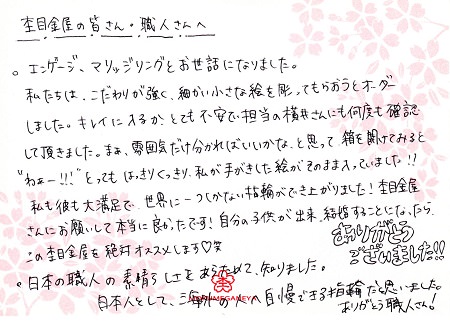 杢目金屋の皆さん・職人さんへ
。エンゲージ、マリッジリングとお世話になりました。
私たちは、こだわりが強く、細かい小さな絵を彫ってもらおうとオーダー
しました。キレイに入るか、とても不安で担当の横井さんにも何度も確認
して頂きました。まぁ、雰囲気だけ分かればいいかな、と思って箱を開けてみると
"わぁー!!!"とってもはっきりくっきり、私が手がきした絵がそのまま入っていました!!
私も彼も大満足で、世界に一つしかない指輪ができ上がりました!杢目金屋
さんにお願いして本当に良かったです!自分の子供が出来、結婚することになったら、
この杢目金屋を絶対オススメします♡笑
ありがとう
ございました!!
。日本の職人の素晴らしさをあらためて、知りました。
日本人として、海外の人へ自慢できる指輪だと思いました。
ありがとう職人さん!
MOKUMEGANEYA